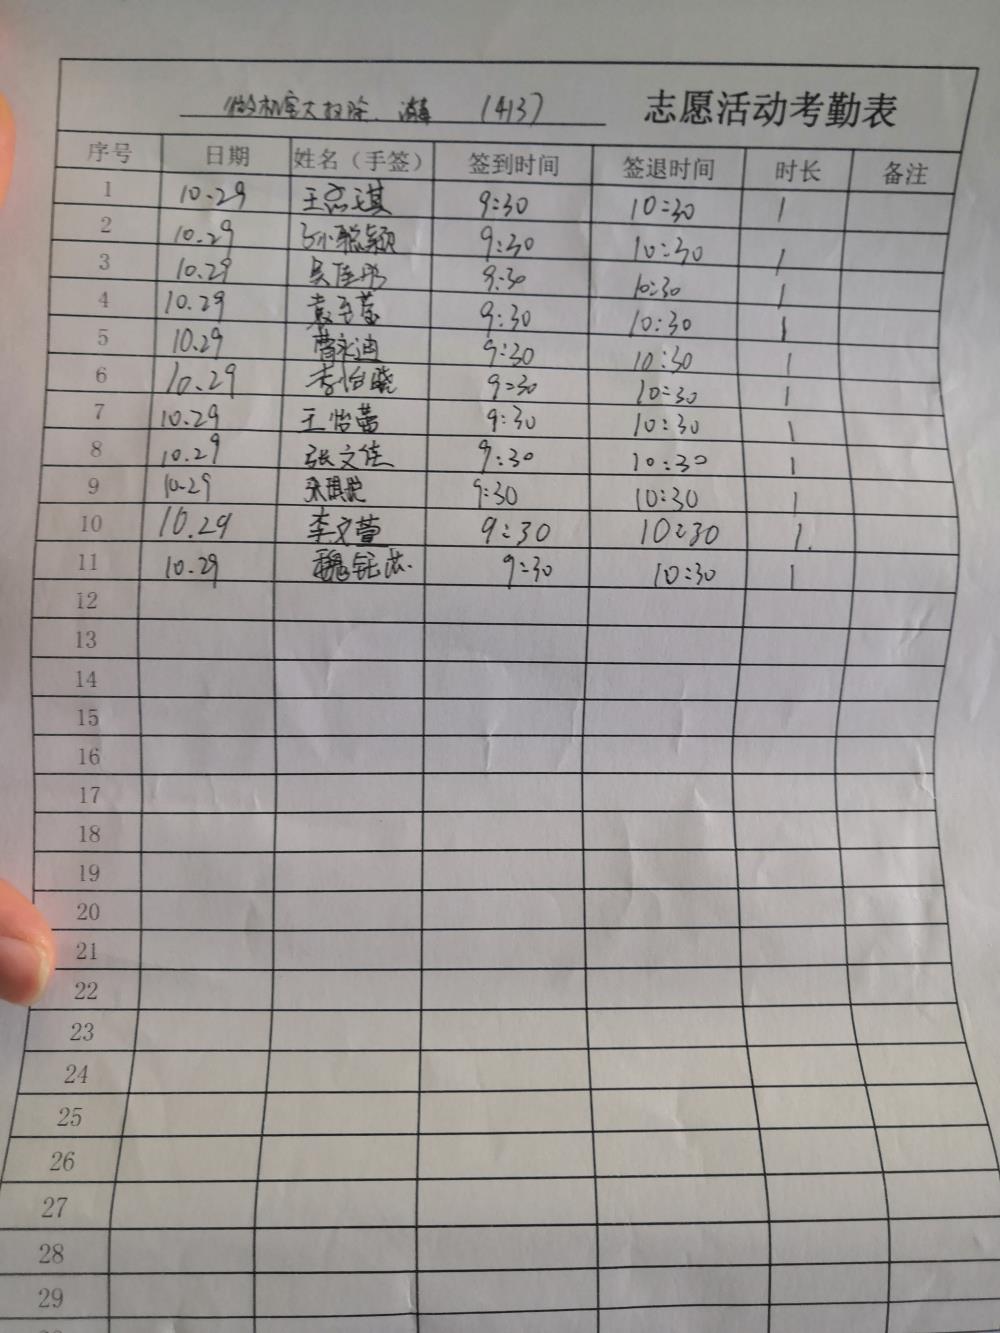 做机房大扫除、消毒 1413) 志愿活动考勤表
序号 日期 姓名（手签） 签到时间 签退时间 时长 备注
1 10.29 9:30 10:30 1
2 10.29 孙聪颖 9:30 10:30 1
3 10.29 吴佳彤 9:30 10:30 1
4 10.29 9:30 10:30 1
5 10.29 曹永迪 9:30 10:30 1
6 10.29 李怡晓 9:30 10:30 1
7 10.29 王怡蕾 9:30 10:30 1
8 10.29 张文佳 9:30 10:30 1
9 10.29 9:30 10:30 1
10 10.29 李文萱 9:30 10:30 1.
11 10.29 9:30 10:30 1
12
13
14
15
16
17
18
19
20
21
22
23
24
25
26
27
28
29